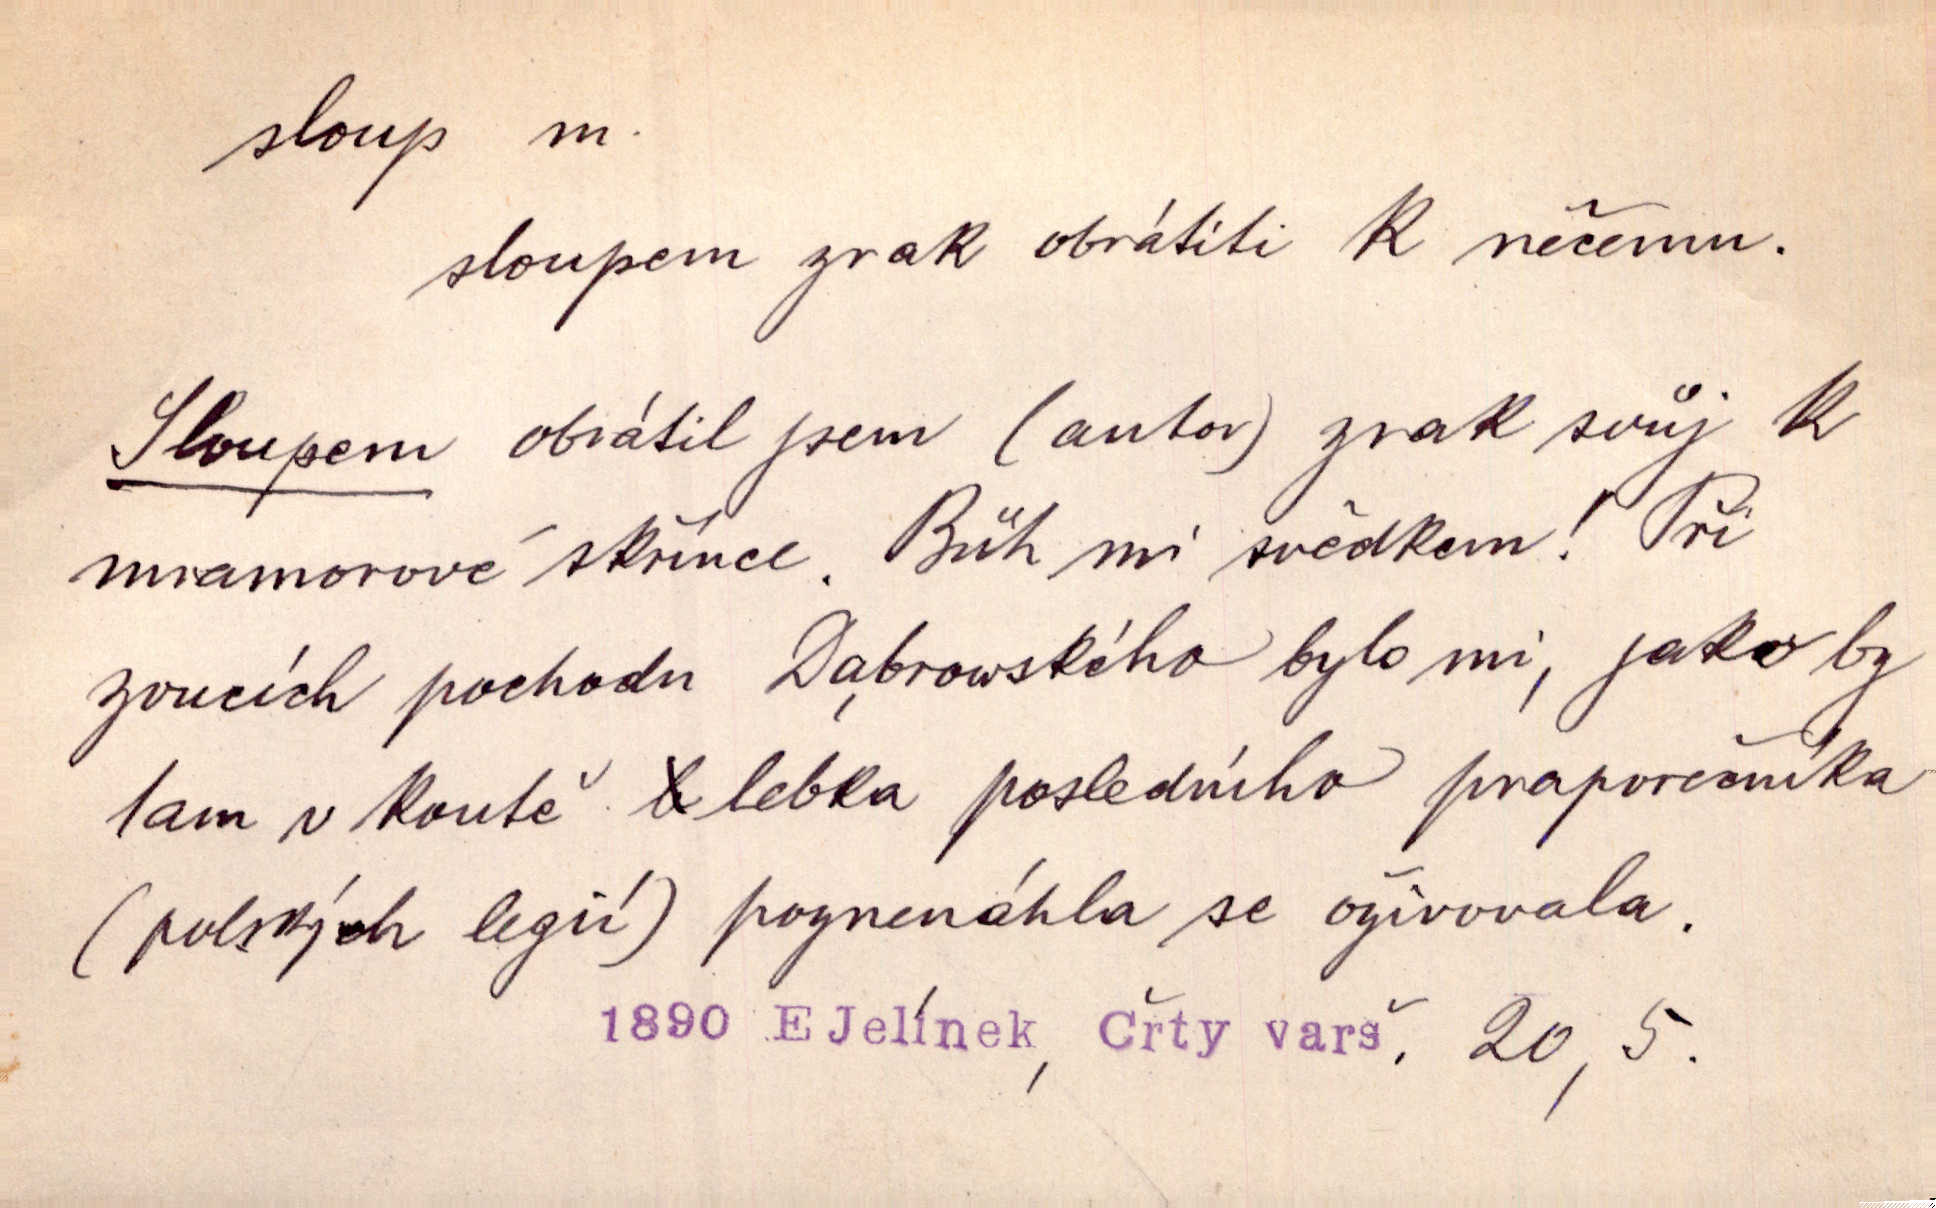 sloup m.
sloupem zrak obrátiti k něčemu.
Sloupem obrátil jsem (autor) zrak svůj k
mramorové skřínce. Bůh mi svědkem! Při
zvucích pochodu Dąbrowského bylo mi, jako by
tam v koutě lebka posledního praporečníka
(polských legií) poznenáhla se oživovala.
1890 E Jelínek, Črty varš. 20, 5.